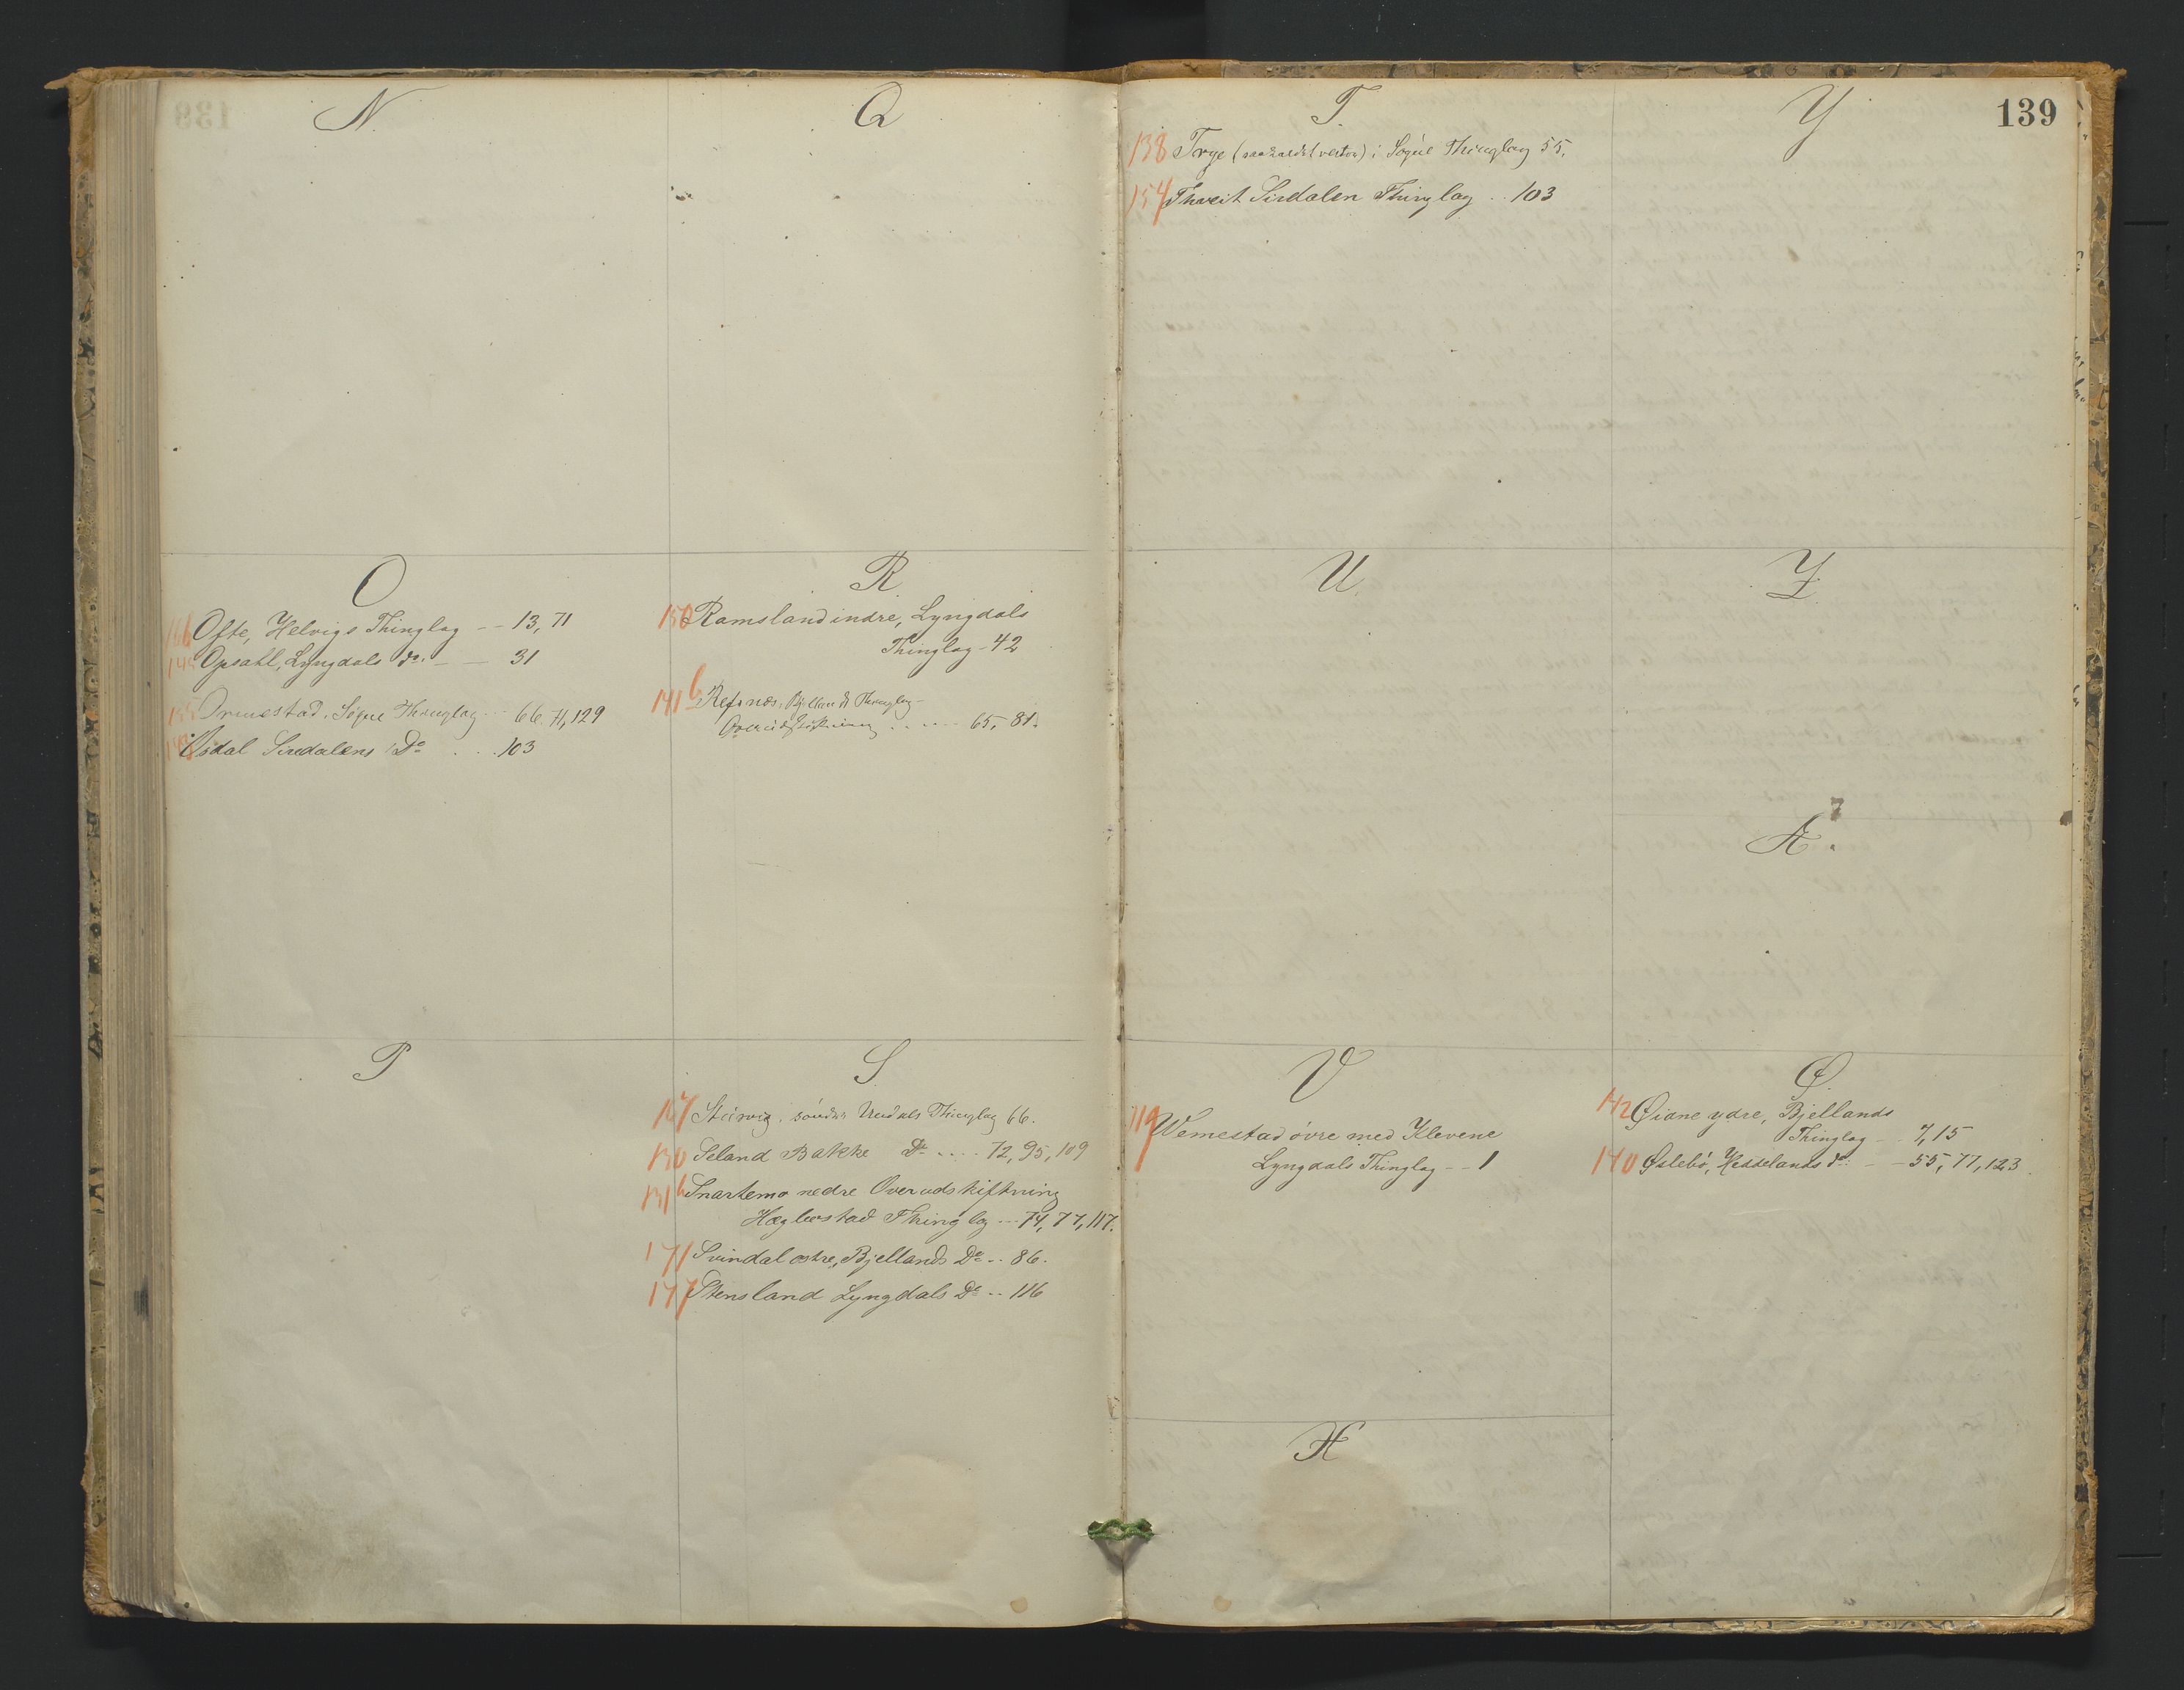 N.
O
166 Ofte, Helvigs Thinglag -- 13, 71
Opsahl, Lyngdals do. — 31
Ormestad, Sögne Thinglag -- 66. 71, 129
Osdal Siredalens Do ... 103
P
Q
R.
150 Ramsland indre, Lyngdals
Thinglag - 42
141 b Refsnæs, Bjellands Thinglag -
Overudskiftning ..... 65, 81.
S
167 söndre Undals Thinglag 66.
130 Seland Bakke Do .... 72, 95, 109
131 b Snartemo nedre Overudskiftning
Hægbostad Thinglag --- 74, 77, 117.
171 Svindal östre, Bjellands Do .. 86.
147 Stensland Lyngdals Do .. 116
T.
138 Trye (saakaldet vestre) i Sögne Thinglag 55.
154 Thveit Sirdalen Thinglag .. 103
U
V
119 Wemestad övre med Klevene
Lyngdals Thinglag -- 1
Y
139
Z
Æ.
Ø.
142 Øiane ydre, Bjellands
Thinglag - 7, 15
140 Øslebö, Heddelands do: — 55, 77, 123.